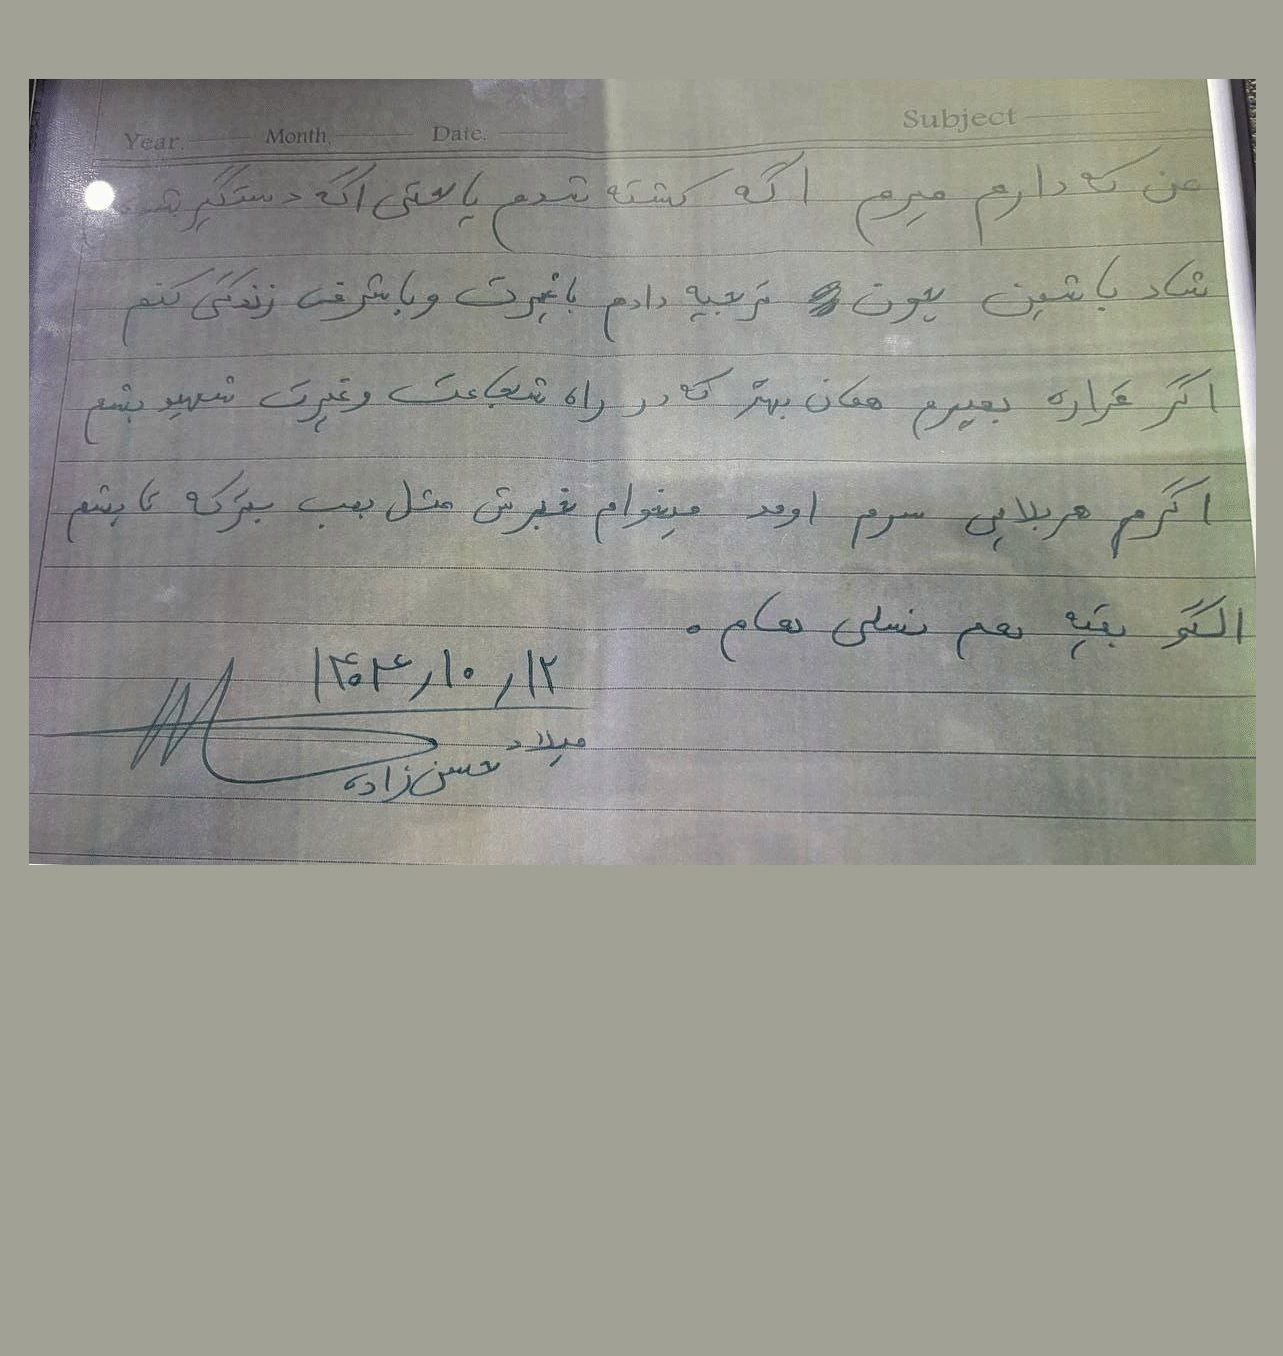 Year. Month, Date. Subject
من که دارم میرم اگه کشته شدم یا حتی اگه دستگیر شدم
شاد باشین چون ترجیه دادم باغیرت و باشرف زندگی کنم
اگر قراره بمیرم همان بهتر که در راه شجاعت و غیرت شهید بشم
اگرم هر بلایی سرم اومد میخوام خبرش مثل بمب بترکه تا بشم
الگو بقیه هم نسلی هام.
۱۴۰۴/۱۰/۱۲
میلاد حسن زاده